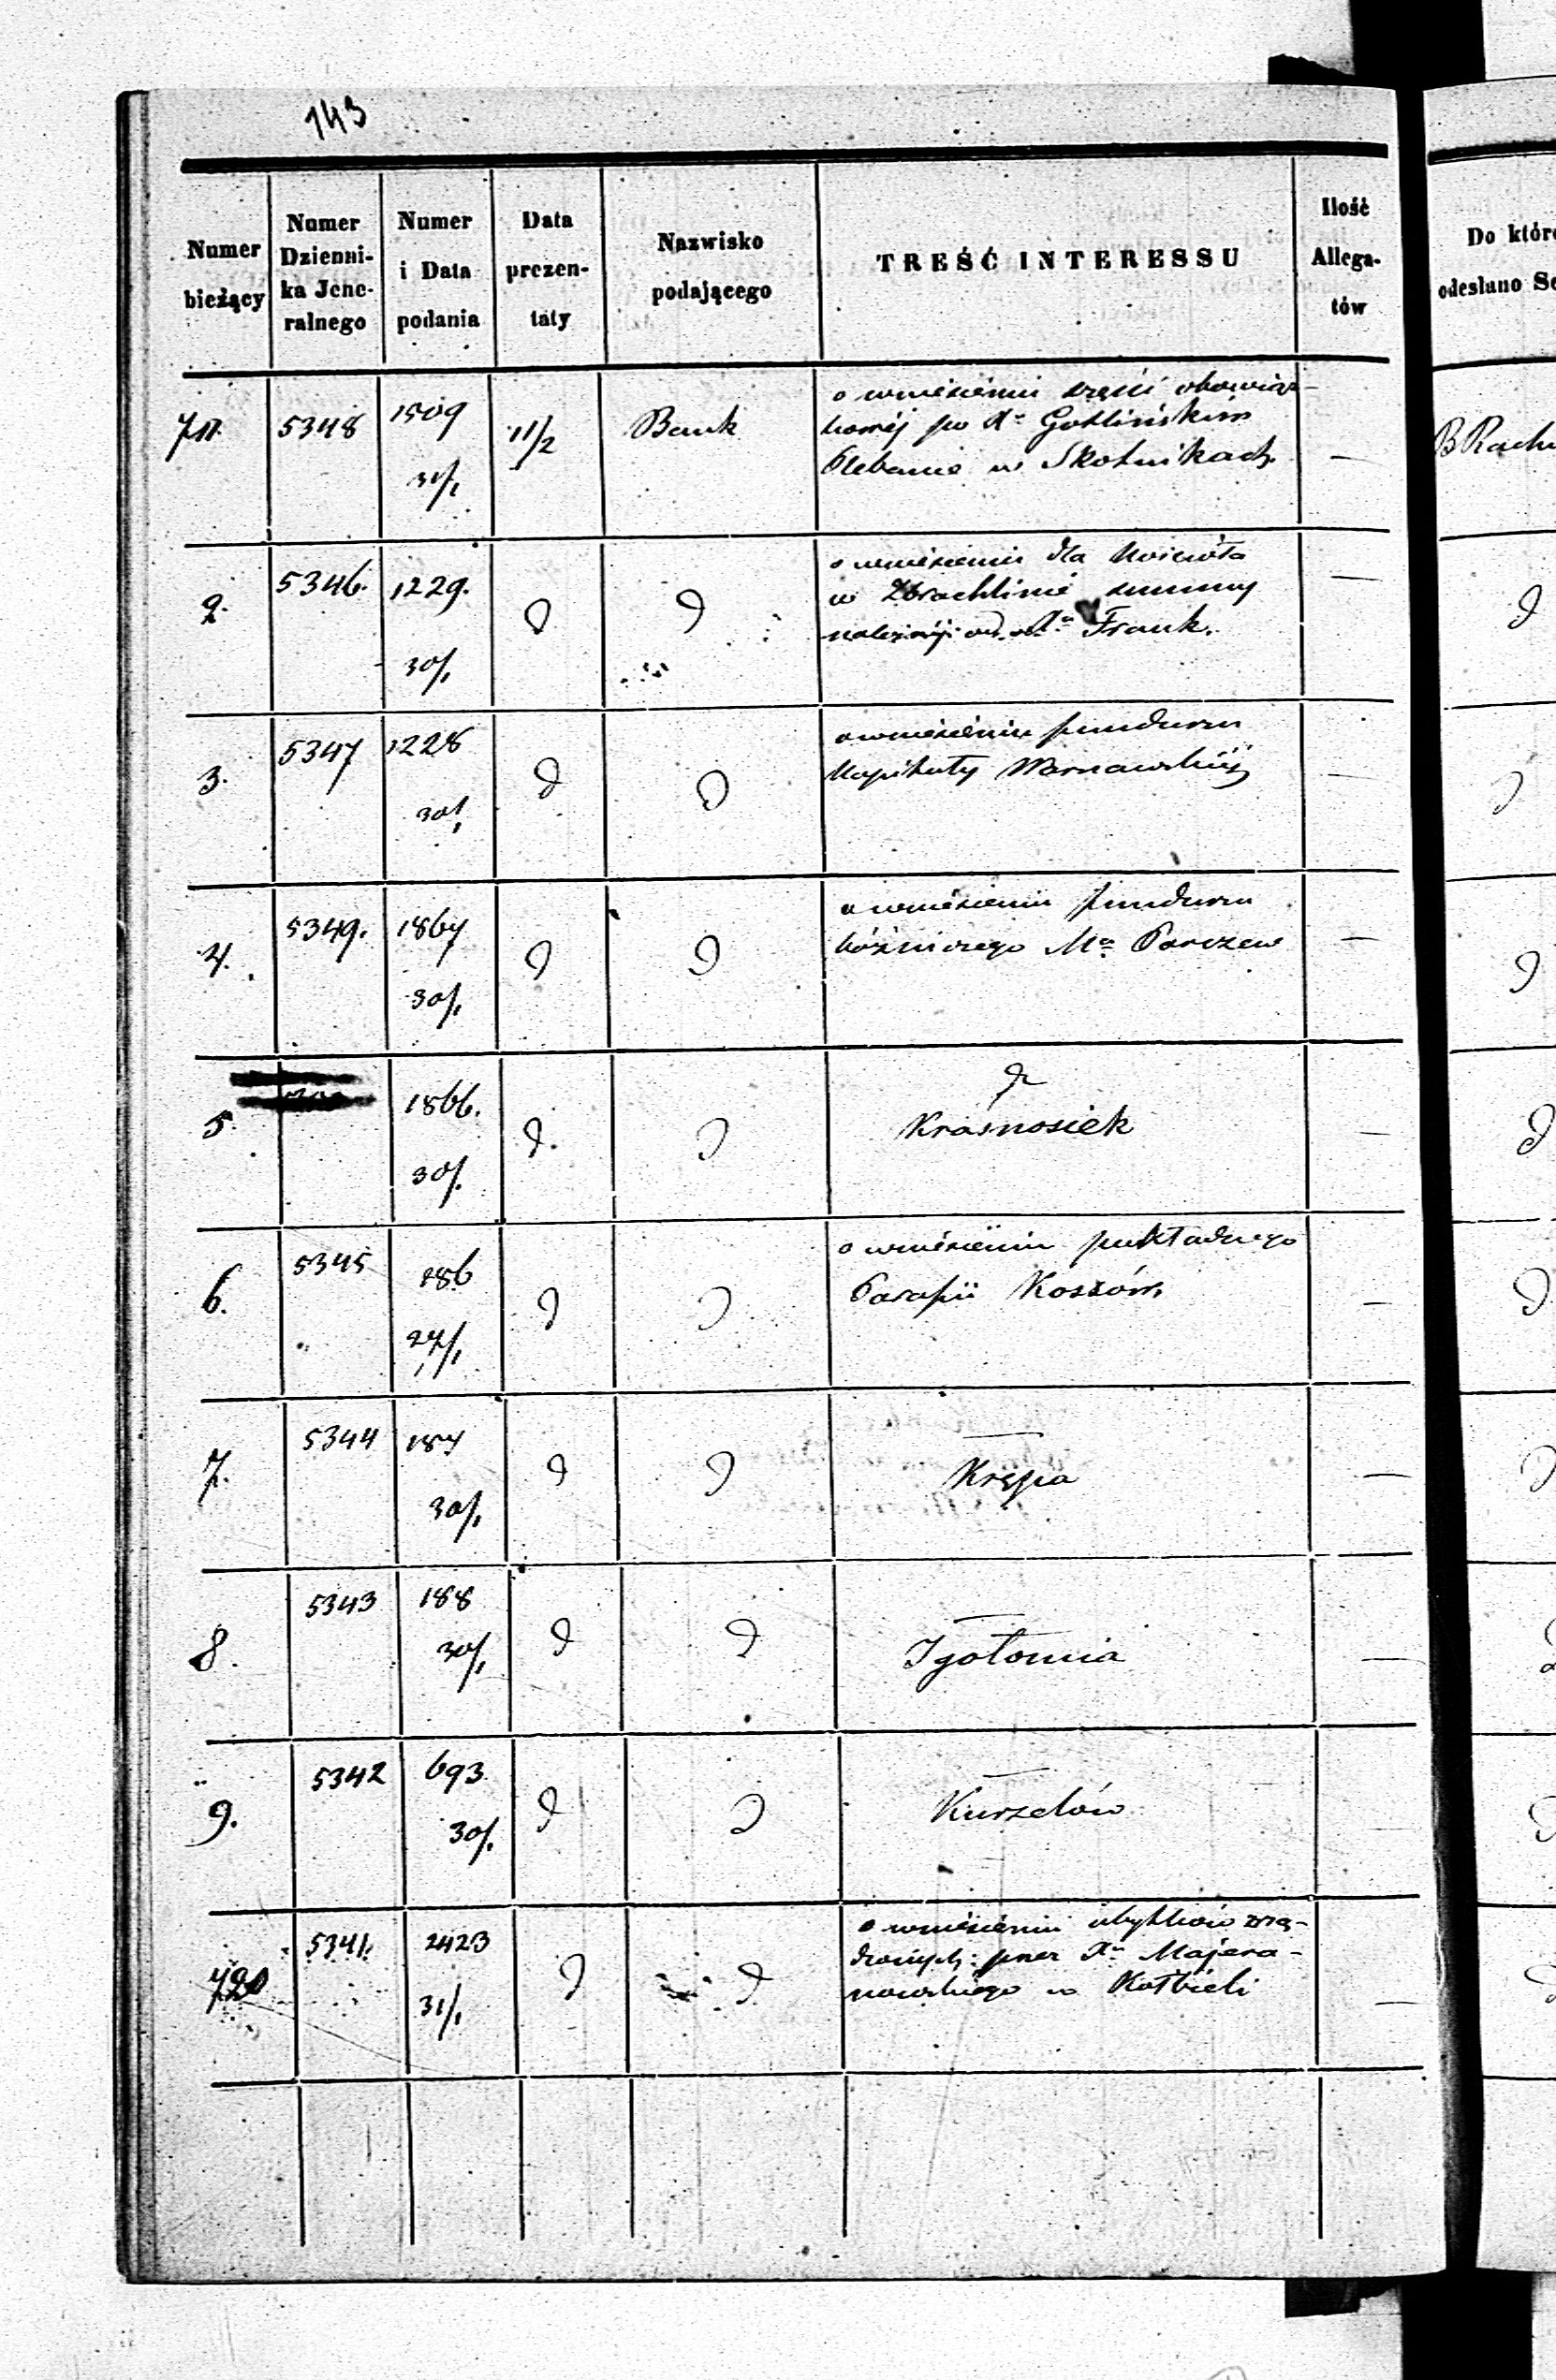 143
Numer bieżący
Numer Dzienni-ka Jene-ralnego
Numer i Data podania
Data prezen-taty
Nazwisko podającego
TREŚĆ INTERESSU
Ilość Allega-tów
Do któr
odesłano Se
711. 5348 1509 31/1 11/2 Bank
o wniesieniu części obowiąz-
kowéj po Xs Goblińskim
Plebanie w Skotnikach. —
B Rach
2. 5346. 1229. 30/1 d d
o wniesieniu dla Kościoła
w Zbrachlinie summy
należnéj od Xa Frank. —
d
3. 5347 1228 30/1 d d
o wniesieniu funduszu
Kapituły Warszawskiéj —
d
4. 5349. 1867 30/1 d d
o wniesieniu funduszu
bóżniczego Ma Parczew —
d
5. 1866. 30/. d. d
d
Krasnosiek —
d
6. 5345 186 27/1 d d
o wniesieniu pokładnego
Parafii Koszów —
d
7. 5344 187 30/1 d d
—
Krępa —
d
8. 5343 188 30/1 d d
—
Igołomia —
9. 5342 693 30/. d d
—
Kurzelów —
720 5341. 2423 31/1 d d
o wniesieniu ubytków zrzą-
dzonych przez Xa Majera-
nowskiego w Kołbieli —